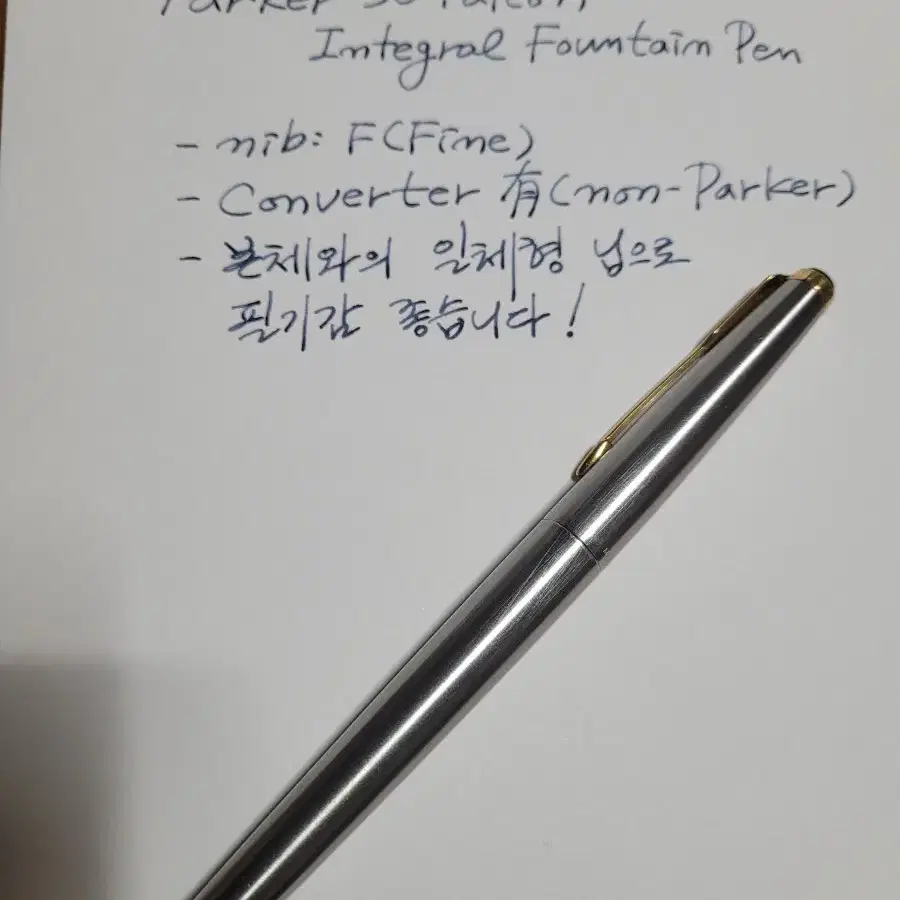 Parker 50 Falcon
Integral Fountain Pen
- nib: F(Fine)
- Converter 有(non-Parker)
- 본체와의 일체형 닙으로
필기감 좋습니다!